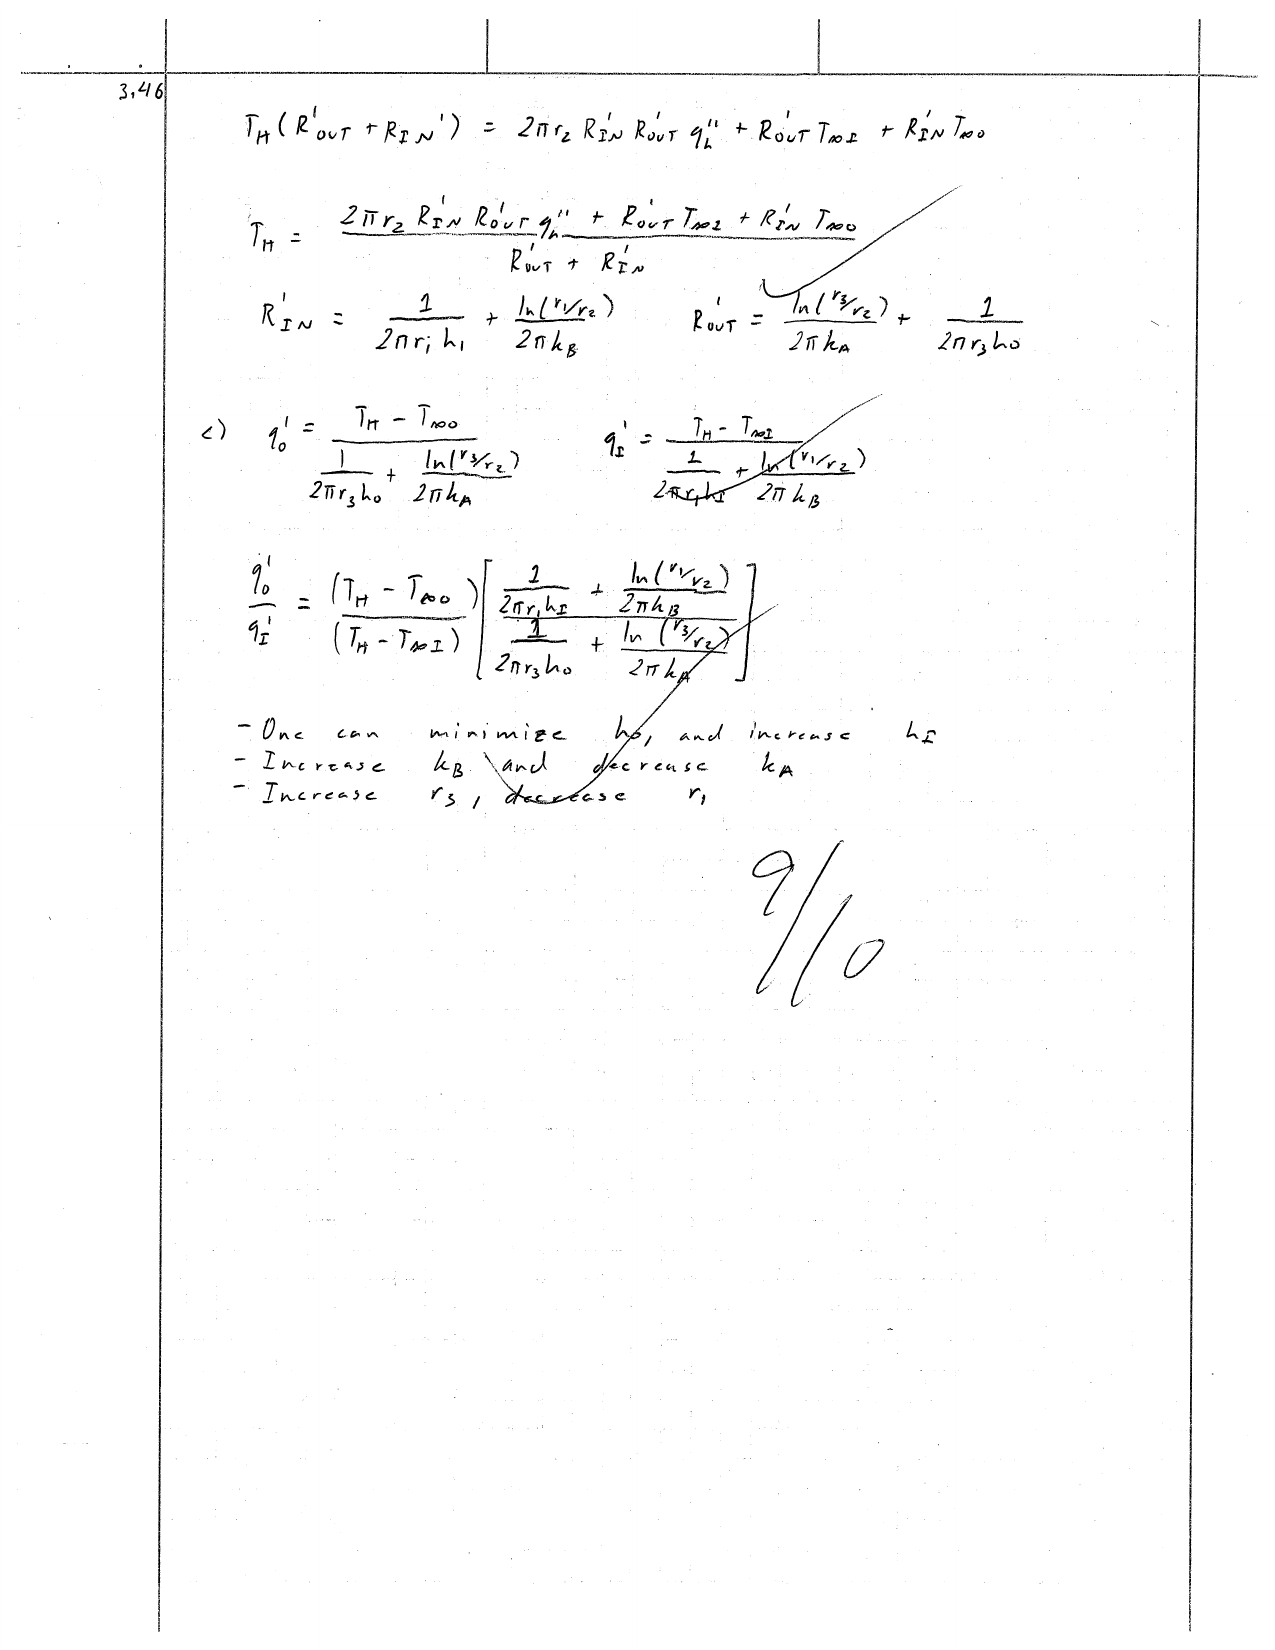 3.46
T_H (R'_OUT + R_IN') = 2πr_2 R'_IN R'_OUT q''_h + R'_OUT T_∞I + R'_IN T_∞O
T_H = (2πr_2 R'_IN R'_OUT q''_h + R'_OUT T_∞I + R'_IN T_∞O) / (R'_OUT + R'_IN)
R'_IN = 1/(2πr_1 h_1) + ln(r_1/r_2)/(2πk_B)    R'_OUT = ln(r_3/r_2)/(2πk_A) + 1/(2πr_3 h_O)
c) q'_O = (T_H - T_∞O) / (1/(2πr_3 h_O) + ln(r_3/r_2)/(2πk_A))    q'_I = (T_H - T_∞I) / (1/(2πr_1 h_I) + ln(r_1/r_2)/(2πk_B))
q'_O/q'_I = (T_H - T_∞O)/(T_H - T_∞I) [(1/(2πr_1 h_I) + ln(r_1/r_2)/(2πk_B)) / (1/(2πr_3 h_O) + ln(r_3/r_2)/(2πk_A))]
- One can minimize h_O, and increase h_I
- Increase k_B and decrease k_A
- Increase r_3, decrease r_1
9/10